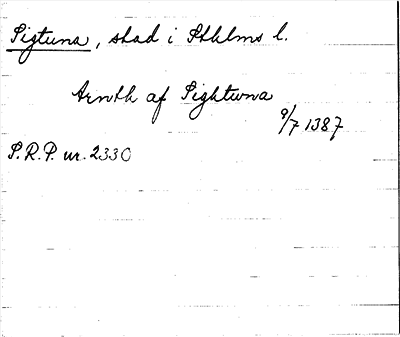 Sigtuna, stad i Sthlms l.
Arnth af Sightwna
9/7 1387
S.R.P. nr. 2330